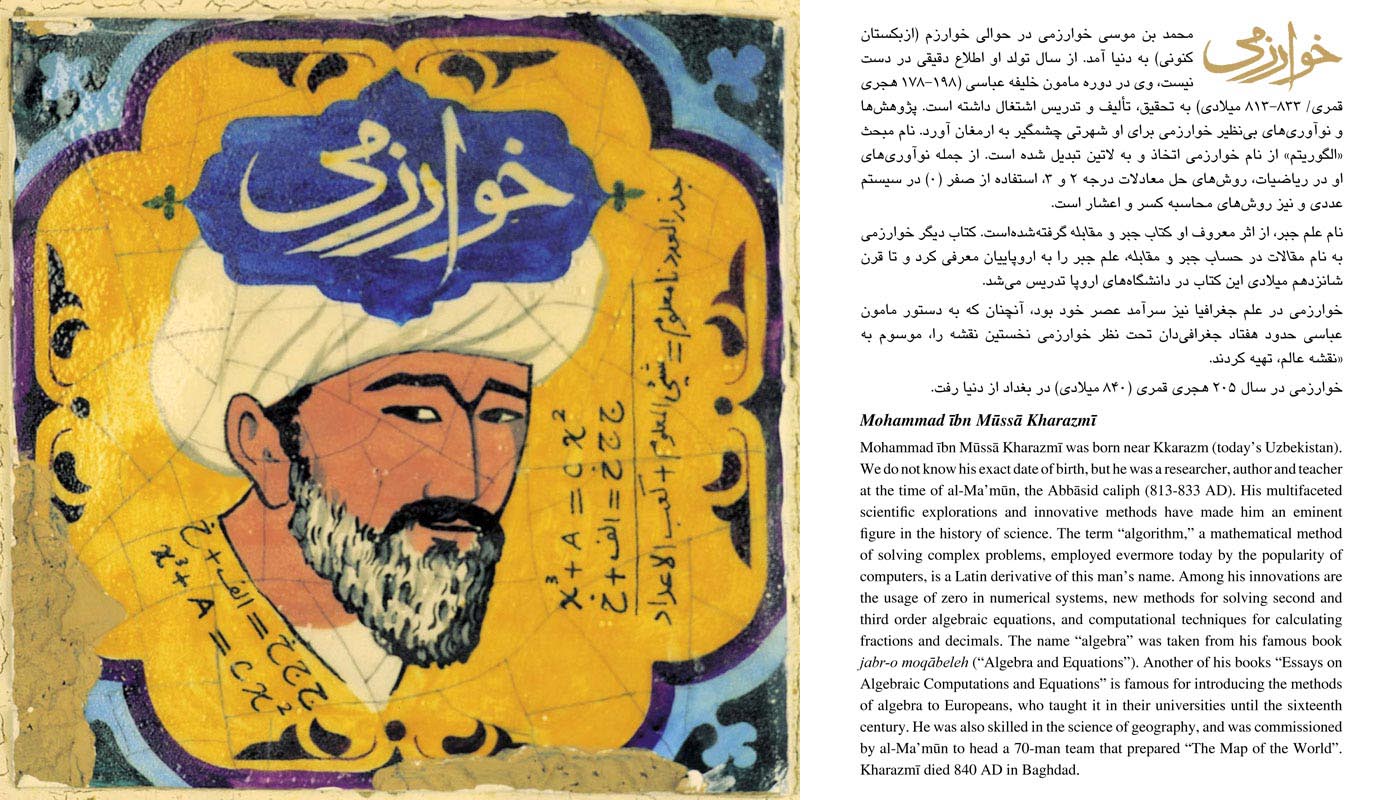 خوارزمی
جذر العدد نامعلوم = شیئی المعلوم + کعب الاعداد
ج ج خ = الف + خ
x³ + A = C x²
ج ج خ = الف + خ
x³ + A = C x²
خوارزمی
محمد بن موسی خوارزمی در حوالی خوارزم (ازبکستان
کنونی) به دنیا آمد. از سال تولد او اطلاع دقیقی در دست
نیست، وی در دوره مامون خلیفه عباسی (۱۹۸–۱۷۸ هجری
قمری/ ۸۳۳–۸۱۳ میلادی) به تحقیق، تألیف و تدریس اشتغال داشته است. پژوهش‌ها
و نوآوری‌های بی‌نظیر خوارزمی برای او شهرتی چشمگیر به ارمغان آورد. نام مبحث
«الگوریتم» از نام خوارزمی اتخاذ و به لاتین تبدیل شده است. از جمله نوآوری‌های
او در ریاضیات، روش‌های حل معادلات درجه ۲ و ۳، استفاده از صفر (۰) در سیستم
عددی و نیز روش‌های محاسبه کسر و اعشار است.
نام علم جبر، از اثر معروف او کتاب جبر و مقابله گرفته‌شده‌است. کتاب دیگر خوارزمی
به نام مقالات در حساب جبر و مقابله، علم جبر را به اروپاییان معرفی کرد و تا قرن
شانزدهم میلادی این کتاب در دانشگاه‌های اروپا تدریس می‌شد.
خوارزمی در علم جغرافیا نیز سرآمد عصر خود بود، آنچنان که به دستور مامون
عباسی حدود هفتاد جغرافی‌دان تحت نظر خوارزمی نخستین نقشه را، موسوم به
«نقشه عالم، تهیه کردند.
خوارزمی در سال ۲۰۵ هجری قمری (۸۴۰ میلادی) در بغداد از دنیا رفت.
Mohammad ībn Mūssā Kharazmī
Mohammad ībn Mūssā Kharazmī was born near Kkarazm (today’s Uzbekistan).
We do not know his exact date of birth, but he was a researcher, author and teacher
at the time of al-Ma’mūn, the Abbāsid caliph (813-833 AD). His multifaceted
scientific explorations and innovative methods have made him an eminent
figure in the history of science. The term “algorithm,” a mathematical method
of solving complex problems, employed evermore today by the popularity of
computers, is a Latin derivative of this man’s name. Among his innovations are
the usage of zero in numerical systems, new methods for solving second and
third order algebraic equations, and computational techniques for calculating
fractions and decimals. The name “algebra” was taken from his famous book
jabr-o moqābeleh (“Algebra and Equations”). Another of his books “Essays on
Algebraic Computations and Equations” is famous for introducing the methods
of algebra to Europeans, who taught it in their universities until the sixteenth
century. He was also skilled in the science of geography, and was commissioned
by al-Ma’mūn to head a 70-man team that prepared “The Map of the World”.
Kharazmī died 840 AD in Baghdad.